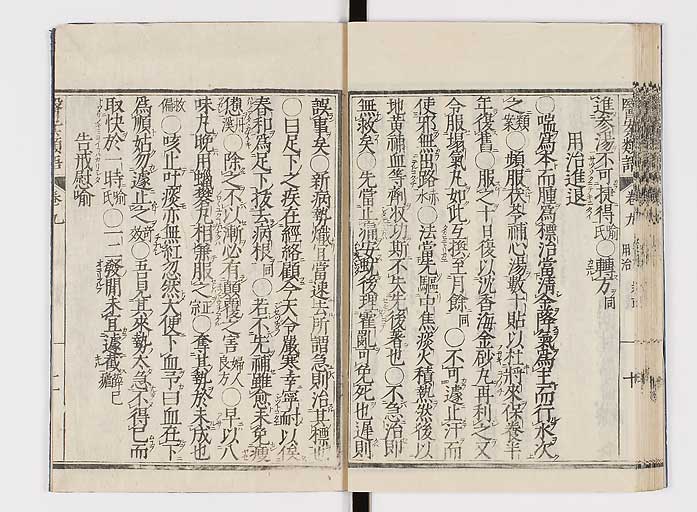 進参湯不可徒得 喻氏 〇轉方 同
用治進退
〇喘為本而腫為標治當清金降氣為主而行水次
之 類案 〇頻服茯苓補心湯數十貼以杜將來保養半
年復舊〇服之十日後以沈香海金砂丸再利之又
令服塌氣丸如此互換至月餘 同 〇不可遽止汗而
使邪無出路 〇法當先驅中焦痰火積熱然後以
地黃補血等劑收功斯不失先後著也〇不急治即
無救矣〇先當止後理霍亂可免死也遲則
誤事矣〇新病勢熾宜當速去所謂急則治其標
〇目足下之疾在經絡顧今天令嚴寒幸寧耐以俟
春和為足下拔去病根 同 〇若不先補雖愈未免瘦
憊 〇除之不以漸必有顛覆之害 婦人良方 〇早以八
味丸晚用蠟礬丸相兼服之 〇奪其勢於未成也
〇咳止吐痰亦無紅忽然大便下血予曰血在下
為順姑勿遽止之 〇吾見其來勢太急不得已而
取快於一時 喻氏 〇一二發間未宜遽截
告戒慰喻
醫
卷九
用治
十